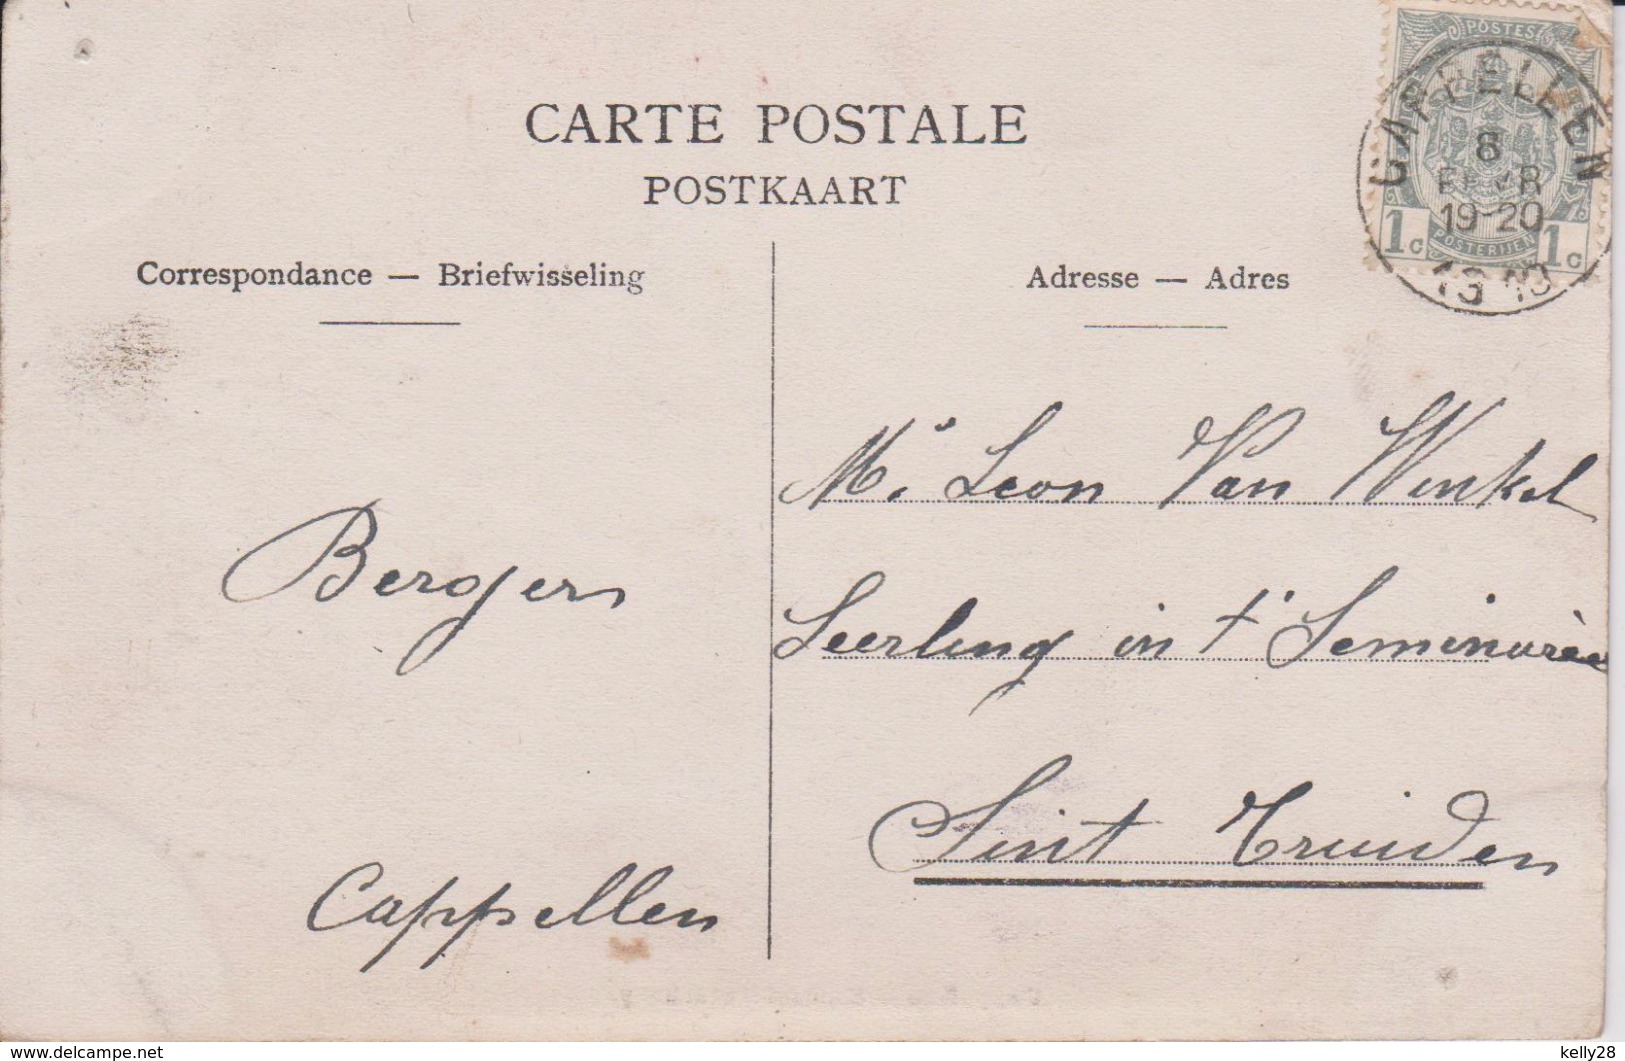 CARTE POSTALE
POSTKAART
Correspondance — Briefwisseling
Adresse — Adres
POSTES
1c POSTERIJEN 1c
CAPPELLEN
8
FEVR
19-20
1910
Mr. Leon Van Winkel
Leerling in t' Seminarie
Sint Truiden
Bergers
Cappellen
http://www.delcampe.net
kelly28